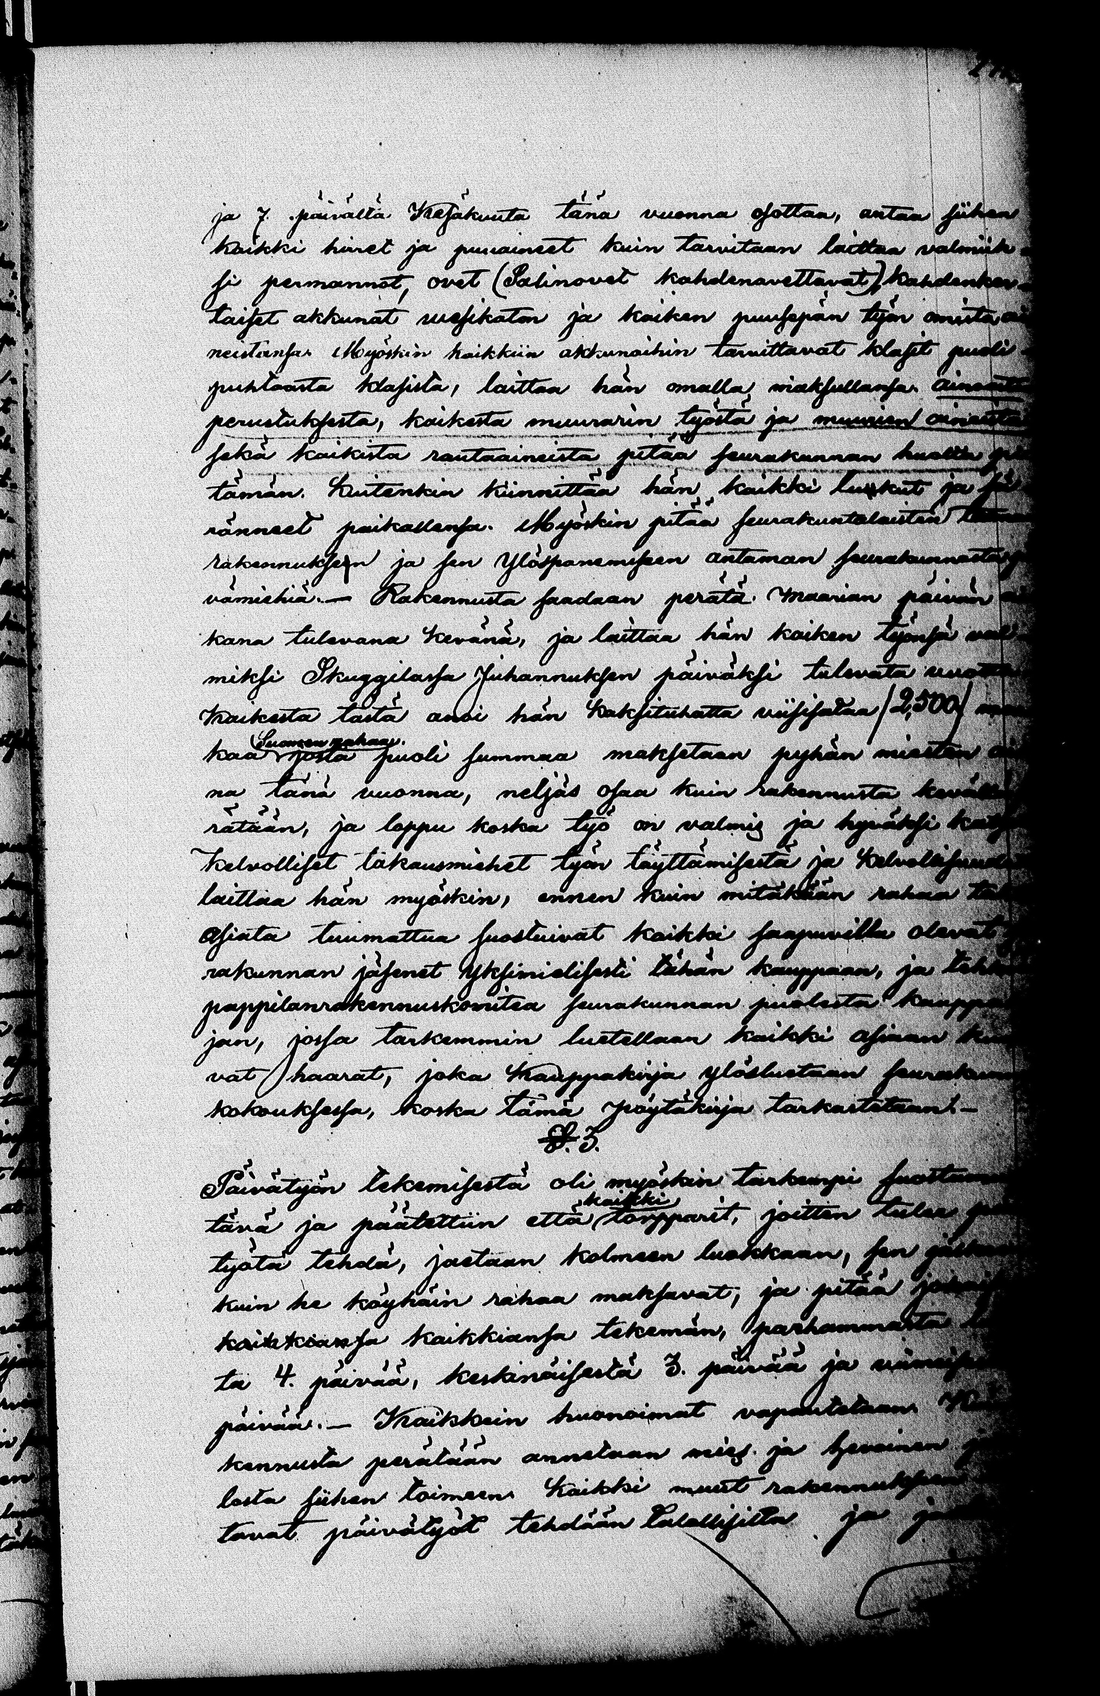 ja 7. päivältä Kesäkuuta tänä vuonna osottaa, antaa siihen
kaikki hirret ja puuaineet kuin tarvitaan laittaa valmiik
si permannot, ovet (Salinovet kahdenavettavat), kahdenker
taiset akkunat vesikaton ja kaiken puusepän työn omista ai
neistansa. Myöskin kaikkiin akkunoihin tarvittavat klasit puoli
puhtaasta klasista, laittaa hän omalla maksullansa.
perustuksesta, kaikesta muurarin työstä ja muurien
sekä kaikista rautaaineista pitää seurakunnan huolta
tämän. Kuitenkin kiinnittää hän kaikki luukut ja
ränneet paikallensa. Myöskin pitää seurakuntalaisten
rakennuksen ja sen ylöspanemiseen antaman seurakunnasta
vämiehiä. — Rakennusta saadaan perätä Maarian päivän
kana tulevana kevänä, ja laittaa hän kaiken työnsä val
miksi Skuggilassa Juhannuksen päiväksi tulevata vuotta
Kaikesta tästä anoi hän kaksituhatta viisisataa /2,500/
kaa Suomen rahaa. josta puoli summaa maksetaan pyhän miesten
na tänä vuonna, neljäs osaa kuin rakennusta keväällä
rätään, ja loppu koska työ on valmis ja hyväksi
Kelvolliset takausmiehet työn täyttämisestä ja kelvollisuude
laittaa hän myöskin, ennen kuin mitäkään rahaa
Asiata tuumattua suostuivat kaikki saapuvilla olevat
rakunnan jäsenet yksimielisesti tähän kauppaan, ja
pappilanrakennuskomitea seurakunnan puolesta kauppa
jan, jossa tarkemmin luetellaan kaikki asiaan
vat haarat, joka kauppakirja ylösluetaan seurakun
kokouksessa, koska tämä pöytäkirja tarkastetaan. —
§. 3.
Päivätyön tekemisestä oli myöskin tarkempi suostumus
tävä ja päätettiin että kaikki torpparit, joitten tulee
työtä tehdä, jaetaan kolmeen luokkaan, sen jälkeen
kuin he köyhäin rahaa maksavat, ja pitää
kaikkiansa tekemän, parhammasta
ta 4. päivää, keskinäisestä 3. päivää ja viimeises
päivää. — Kaikkein huonoimat vapautetaan.
kennusta perätään annetaan mies ja hevoinen
losta siihen toimeen. Kaikki muut rakennukseen
tavat päivätyöt tehdään talollisilta ja